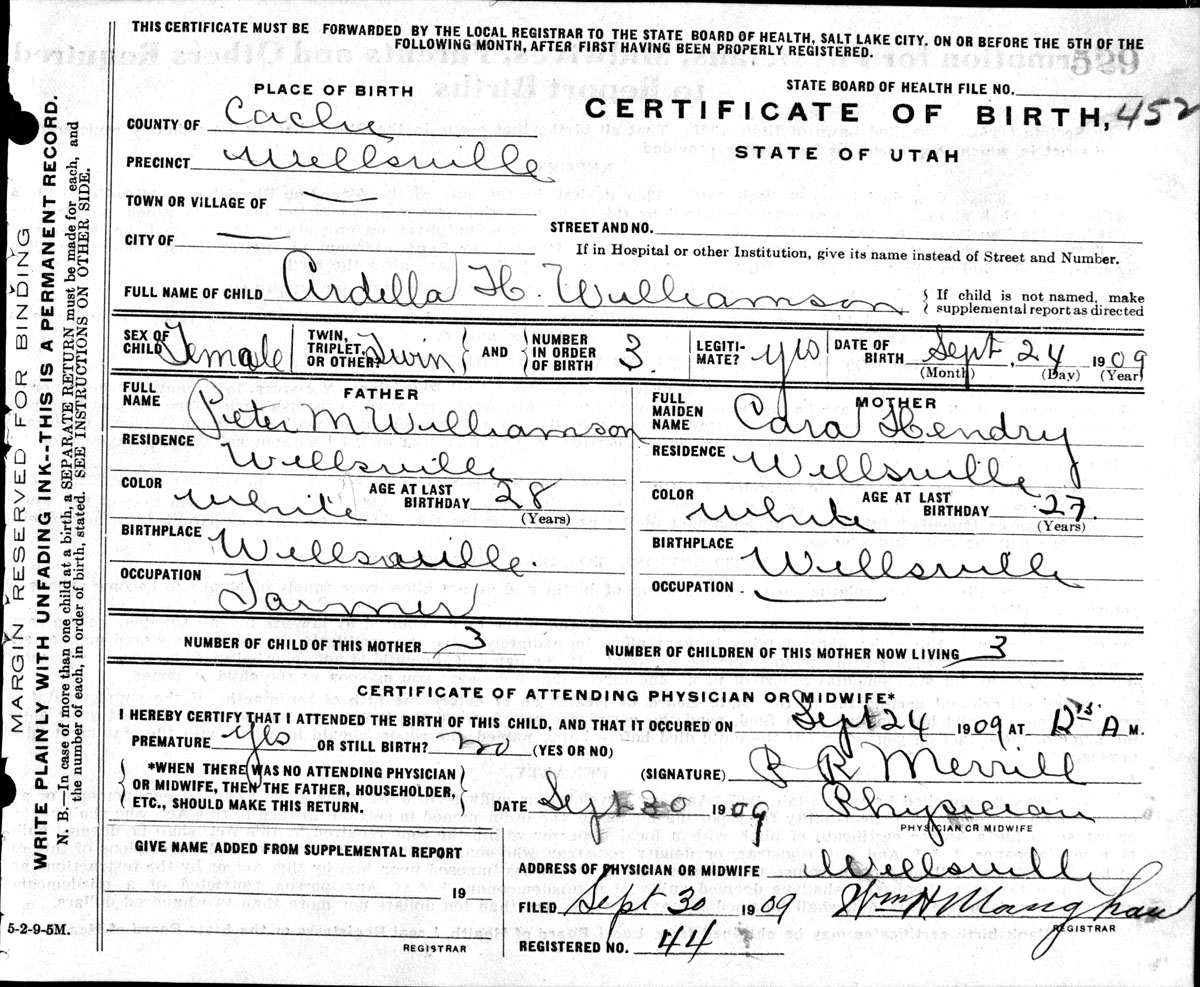 THIS CERTIFICATE MUST BE FORWARDED BY THE LOCAL REGISTRAR TO THE STATE BOARD OF HEALTH, SALT LAKE CITY, ON OR BEFORE THE 5TH OF THE
FOLLOWING MONTH, AFTER FIRST HAVING BEEN PROPERLY REGISTERED.
PLACE OF BIRTH
STATE BOARD OF HEALTH FILE NO.
COUNTY OF Cache
CERTIFICATE OF BIRTH, 452
PRECINCT Wellsville
STATE OF UTAH
TOWN OR VILLAGE OF
STREET AND NO.
CITY OF
If in Hospital or other Institution, give its name instead of Street and Number.
FULL NAME OF CHILD Ardella H. Williamson { If child is not named, make
supplemental report as directed
SEX OF CHILD Female TWIN, TRIPLET, OR OTHER? Twin AND NUMBER IN ORDER OF BIRTH 3. LEGITI-MATE? yes DATE OF BIRTH Sept, 24 1909
(Month) (Day) (Year)
FATHER
FULL NAME Peter M Williamson
RESIDENCE Wellsville
COLOR White AGE AT LAST BIRTHDAY 28
(Years)
BIRTHPLACE Wellsville.
OCCUPATION Farmer
MOTHER
FULL MAIDEN NAME Cara Hendry
RESIDENCE Wellsville
COLOR White AGE AT LAST BIRTHDAY 27.
(Years)
BIRTHPLACE Wellsville
OCCUPATION.
NUMBER OF CHILD OF THIS MOTHER 3
NUMBER OF CHILDREN OF THIS MOTHER NOW LIVING 3
CERTIFICATE OF ATTENDING PHYSICIAN OR MIDWIFE*
I HEREBY CERTIFY THAT I ATTENDED THE BIRTH OF THIS CHILD, AND THAT IT OCCURED ON Sept 24 1909 AT A M.
PREMATURE yes OR STILL BIRTH? no (YES OR NO)
*WHEN THERE WAS NO ATTENDING PHYSICIAN
OR MIDWIFE, THEN THE FATHER, HOUSEHOLDER,
ETC., SHOULD MAKE THIS RETURN.
(SIGNATURE) R Merrill
DATE Sept 30 1909 Physician
PHYSICIAN OR MIDWIFE
GIVE NAME ADDED FROM SUPPLEMENTAL REPORT
ADDRESS OF PHYSICIAN OR MIDWIFE Wellsville
19
FILED Sept 30 1909 Wm H Maughan
REGISTRAR
REGISTERED NO. 44
REGISTRAR
5-2-9-5M.
MARGIN RESERVED FOR BINDING
WRITE PLAINLY WITH UNFADING INK--THIS IS A PERMANENT RECORD.
N. B.—In case of more than one child at a birth, a SEPARATE RETURN must be made for each, and
the number of each, in order of birth, stated. SEE INSTRUCTIONS ON OTHER SIDE.